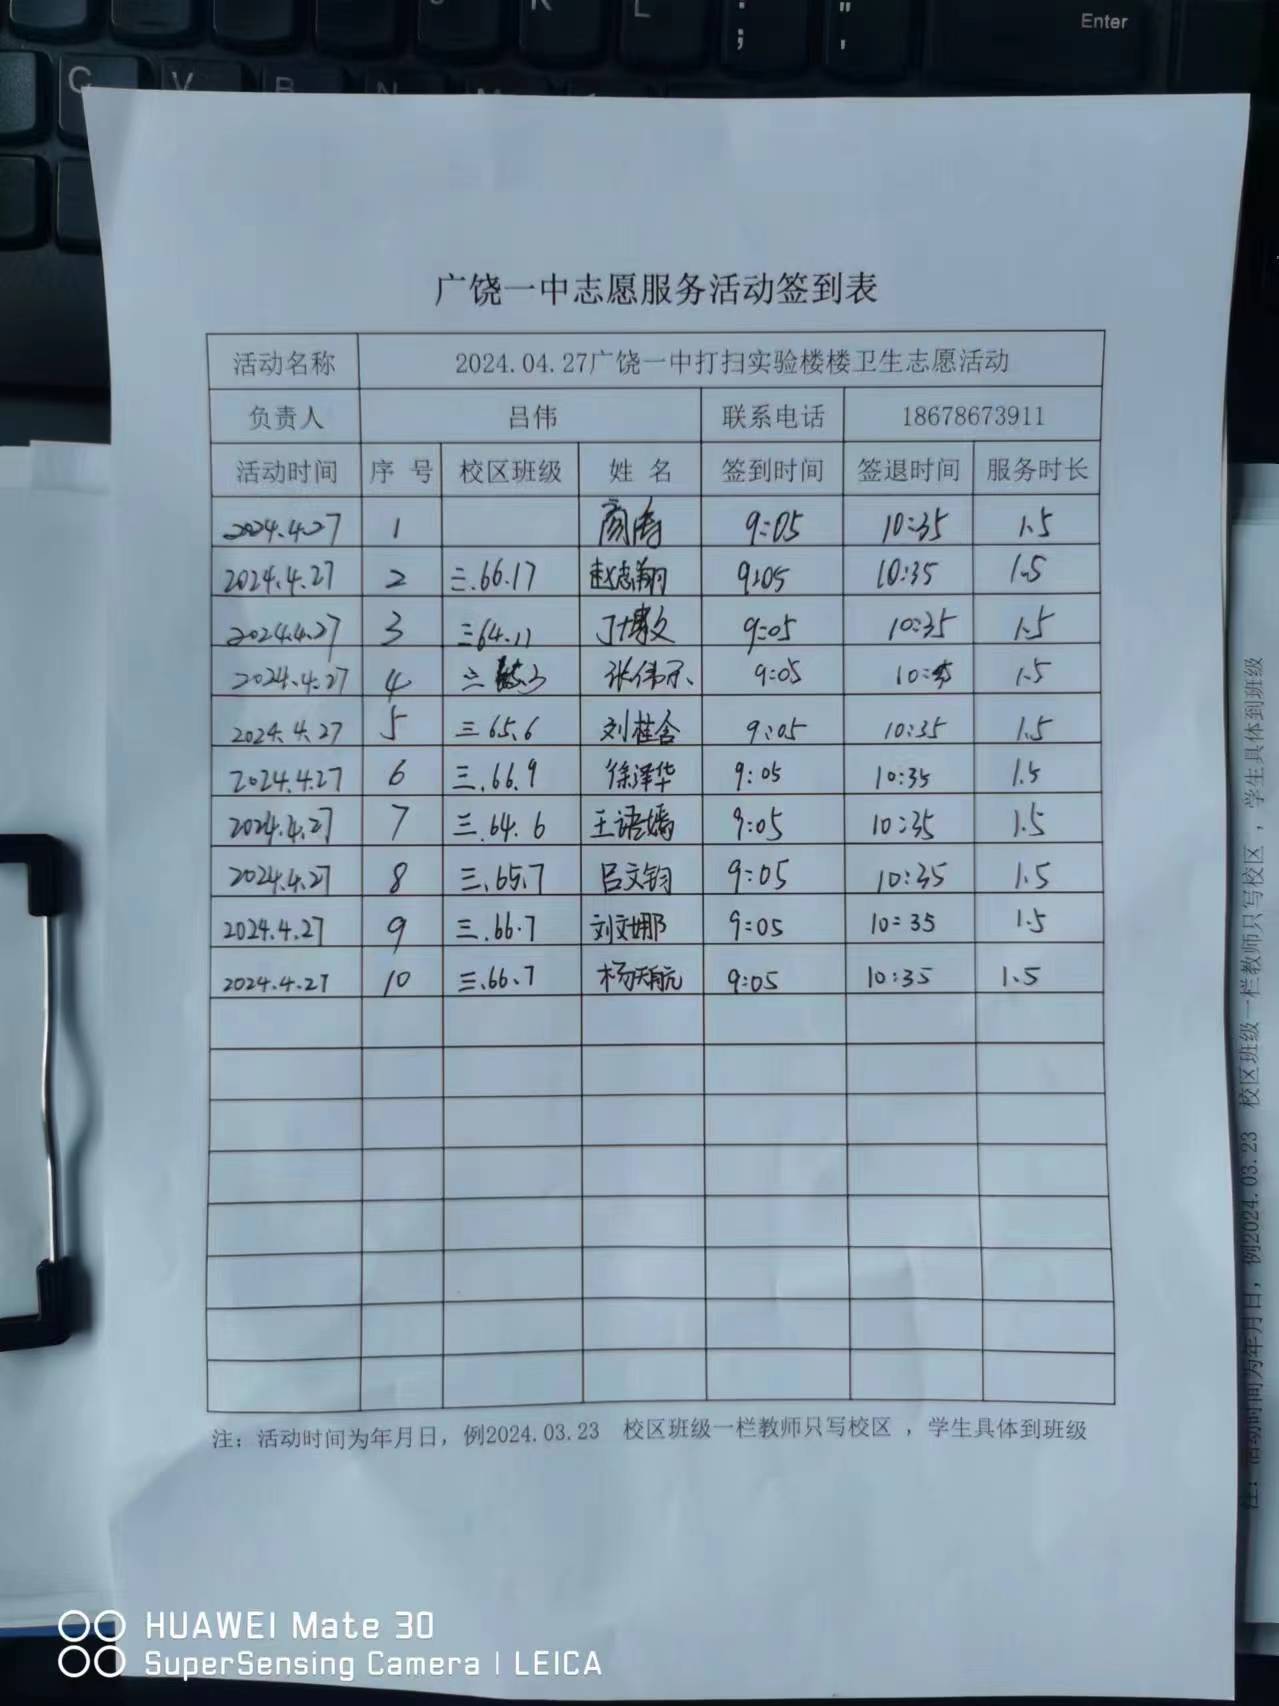 Enter
广饶一中志愿服务活动签到表
活动名称 2024.04.27广饶一中打扫实验楼楼卫生志愿活动
负责人 吕伟 联系电话 18678673911
活动时间 序 号 校区班级 姓 名 签到时间 签退时间 服务时长
2024.4.27 1 9:05 10:35 1.5
2024.4.27 2 三.66.17 赵志翔 9:05 10:35 1.5
2024.4.27 3 三64.11 9:05 10:35 1.5
2024.4.27 4 三 9:05 1.5
2024.4.27 5 三65.6 刘桂含 9:05 10:35 1.5
2024.4.27 6 三.66.9 徐泽华 9:05 10:35 1.5
2024.4.27 7 三.64.6 王语嫣 9:05 10:35 1.5
2024.4.27 8 三.65.7 吕文钧 9:05 10:35 1.5
2024.4.27 9 三.66.7 刘文娜 9:05 10:35 1.5
2024.4.27 10 三.66.7 杨天航 9:05 10:35 1.5
注：活动时间为年月日，例2024.03.23 校区班级一栏教师只写校区，学生具体到班级
注：活动时间为年月日，例2024.03.23 校区班级一栏教师只写校区，学生具体到班级
HUAWEI Mate 30
SuperSensing Camera | LEICA